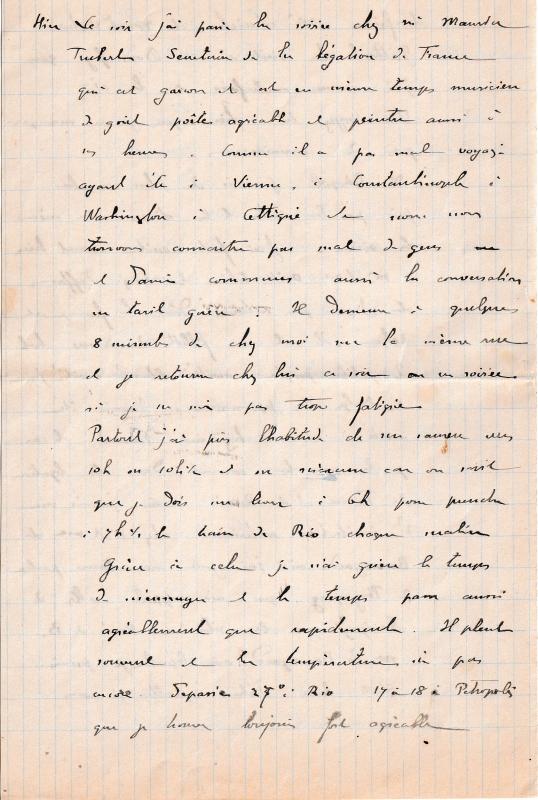 Hier le soir j'ai passé la soirée chez mi Maurice
Trubert Secretaire de la légation de France
qui est garçon et est en même temps musicien
de goût poète agréable et peintre aussi à
ses heures. Comme il a pas mal voyagé
ayant été à Vienne, à Constantinople à
Washington à Cettigné de nous nous
trouvons connaitre pas mal de gens
et d'amis communs aussi la conversation
ne tarit guère. Il demeure à quelques
8 minutes de chez moi sur la même rue
et je retourne chez lui ce soir en soirée
si je ne suis pas trop fatigué
Partout j'ai pris l'habitude de me sauver vers
10h ou 10h½ et on m'excuse car on sait
que je dois me lever à 6h pour prendre
à 7h½ le train de Rio chaque matin
Grâce à cela je n'ai guère le temps
de m'ennuyer et le temps passe aussi
agréablement que rapidement. Il pleut
souvent et la température n'a pas
encore dépassée 27° à Rio 17 à 18 à Petropolis
que je trouve toujours fort agréable